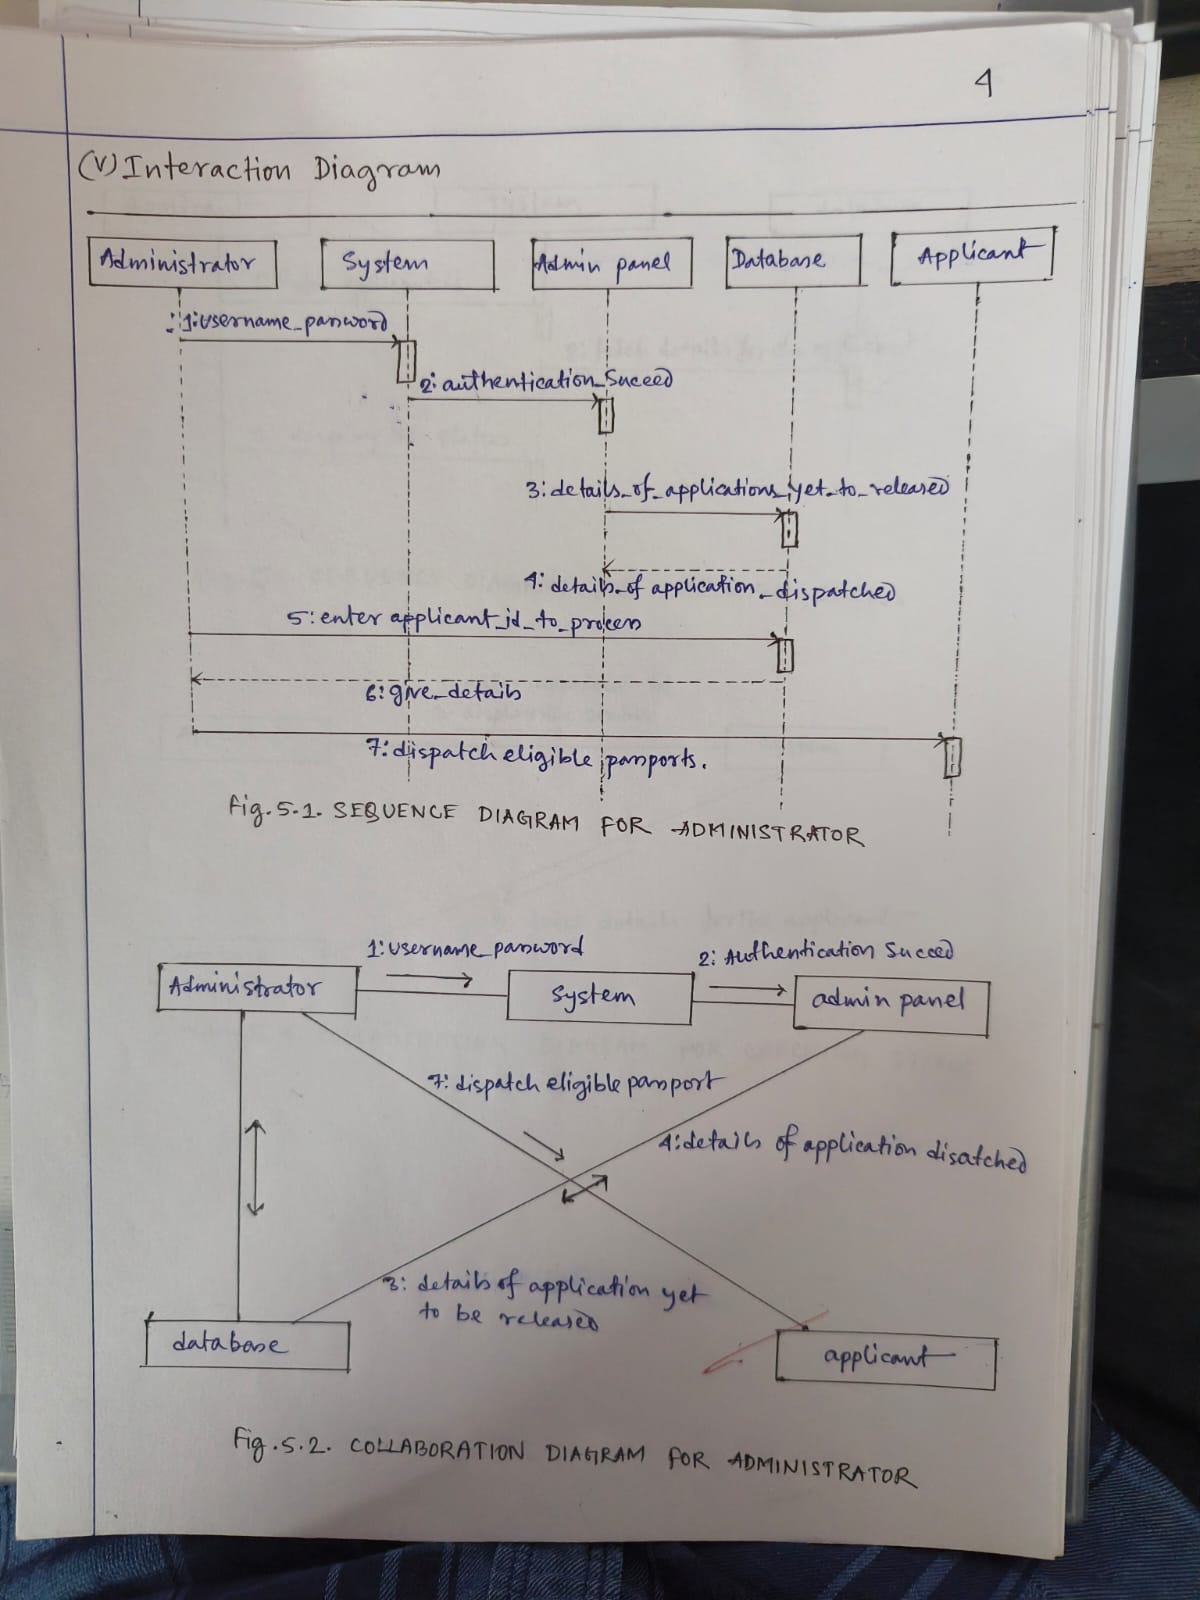 4
(V) Interaction Diagram
Administrator System Admin panel Database Applicant
1: username_password
2: authentication_Suceed
3: details_of_applications_yet_to_released
4: details_of application_dispatched
5: enter applicant_id_to_process
6: give_details
7: dispatch eligible passports.
Fig. 5.1. SEQUENCE DIAGRAM FOR ADMINISTRATOR
1: username_password
2: Authentication Succed
Administrator System admin panel
7: dispatch eligible passport
4: details of application disatched
3: details of application yet
to be released
database applicant
Fig. 5.2. COLLABORATION DIAGRAM FOR ADMINISTRATOR